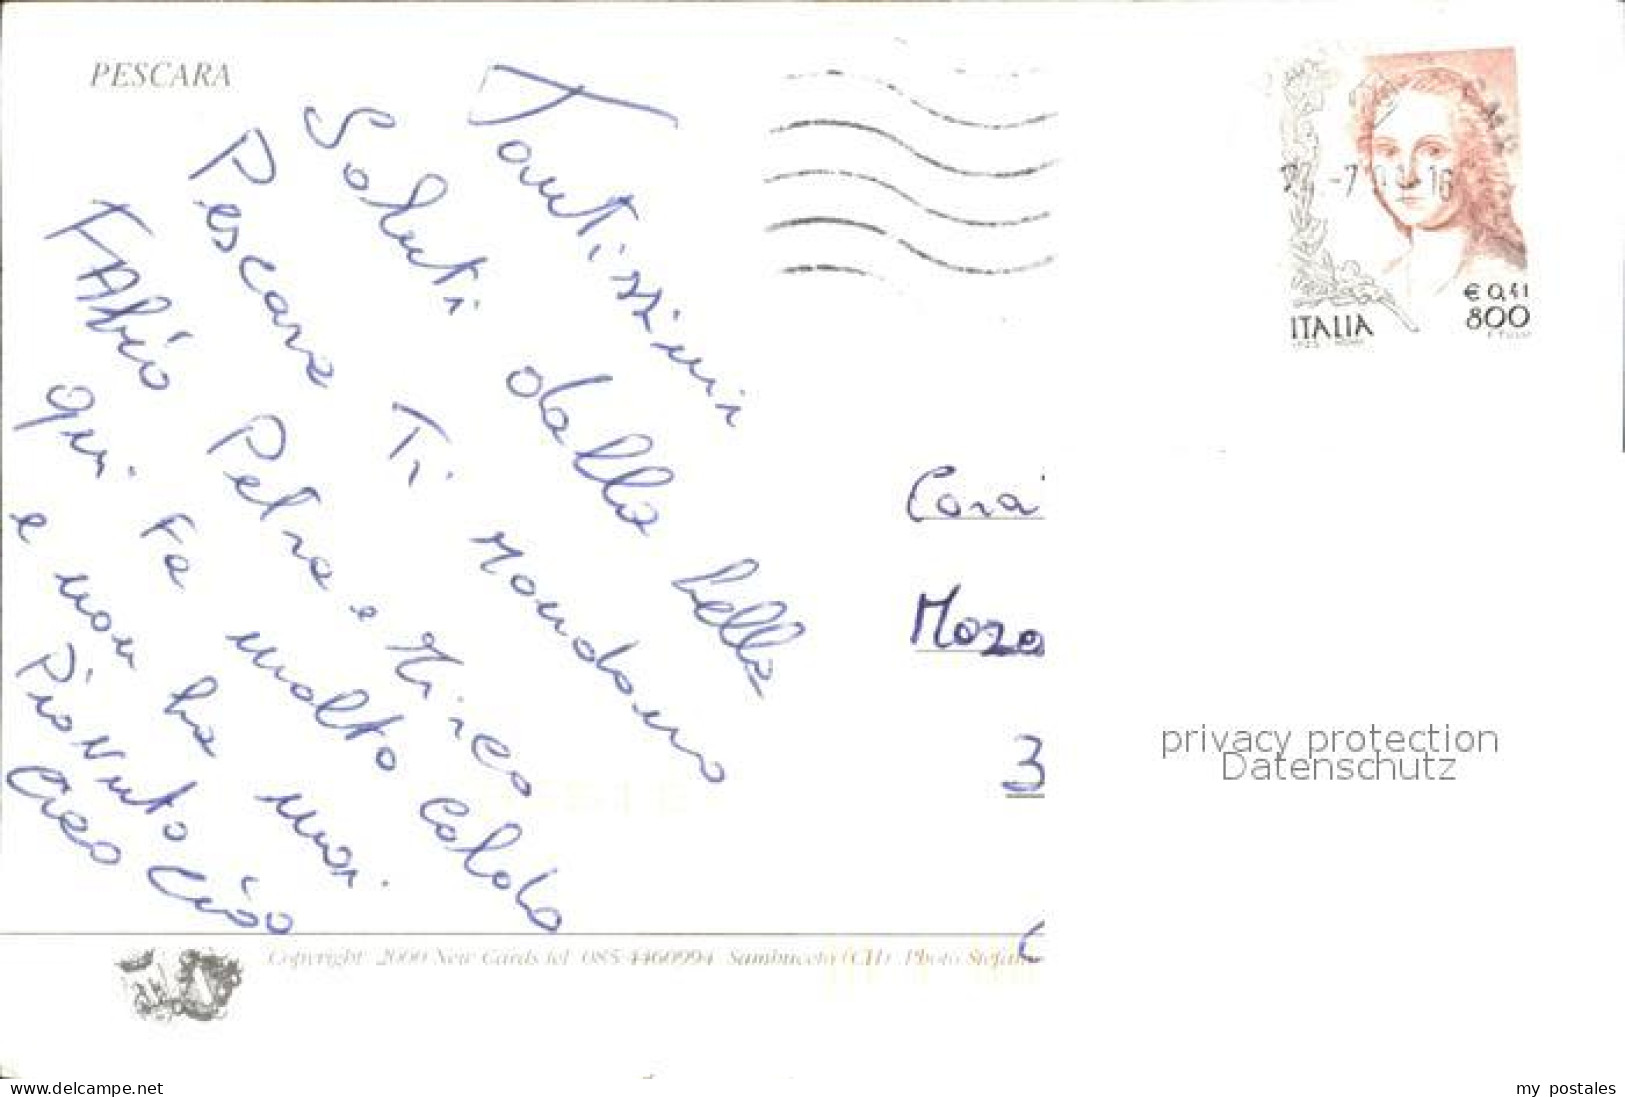 PESCARA
Tantissimi
Saluti dalla bella
Pescara Ti Mandano
FABio Petra e Mirco
qui Fa molto Caldo
e non ha mai
PioVuto Ciao
Ciao
-7
16
€ 0,41
800
ITALIA
Cora
Moza
3
privacy protection
Datenschutz
Copyright 2000 New Cards tel. 085 4460994 Sambuceto (CH) Photo Stefan
www.delcampe.net
my postales